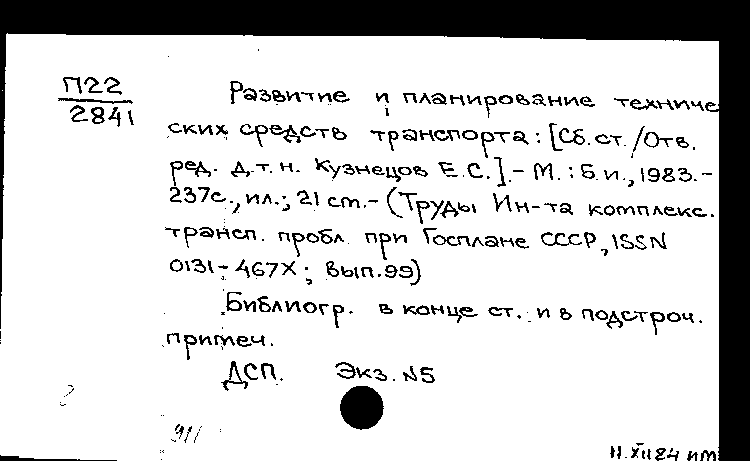 П22
2841
Развитие и планирование техниче
ских средств транспорта: [Сб. ст. /Отв.
ред. д.т.н. Кузнецов Е.С.].- М.: Б.и., 1983.-
237с., ил.; 21 см.- (Труды Ин-та комплекс.
трансп. пробл. при Госплане СССР, ISSN
0131-467X; Вып.99)
Библиогр. в конце ст. и в подстроч.
примеч.
ДСП. Экз. №5
911
11.XII84 ИМ